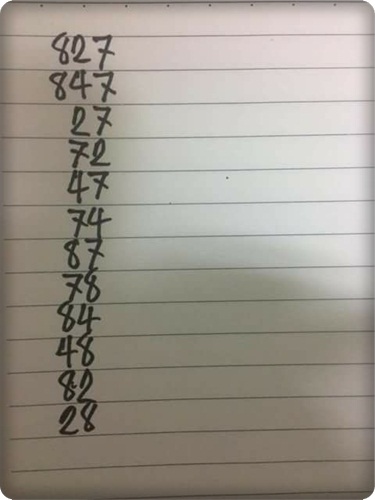 827
847
27
72
47
74
87
78
84
48
82
28